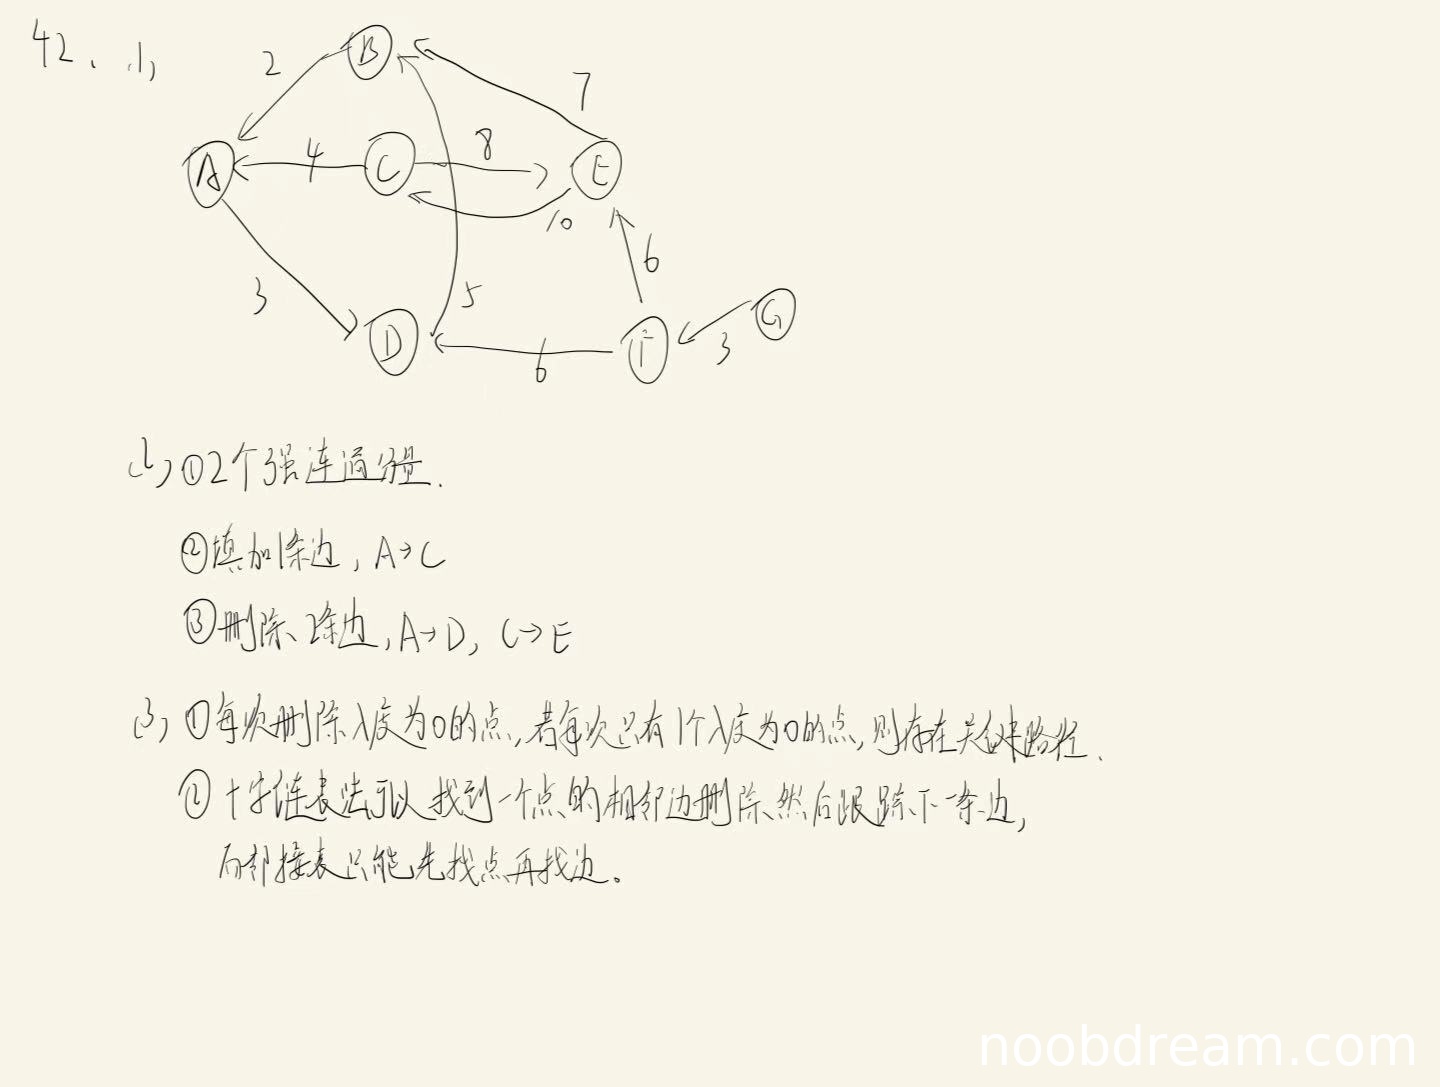 42、(1)
B
2
7
A
4
C
8
E
10
3
5
6
G
D
6
F
3
(2) ①2个强连通分量.
②填加1条边, A→C
③删除、2条边, A→D, C→E
(3) ①每次删除入度为0的点,若每次只有1个入度为0的点,则存在关键路径.
②十字链表法可以找到一个点的相邻边删除、然后跟踪下一条边,
而邻接表只能先找点再找边。
noobdream.com